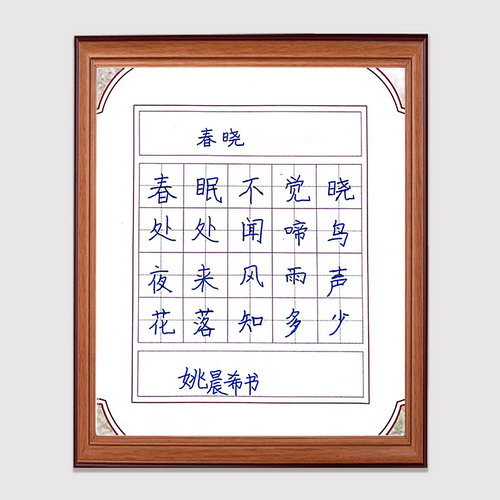 春晓
春眠不觉晓
处处闻啼鸟
夜来风雨声
花落知多少
姚晨希书